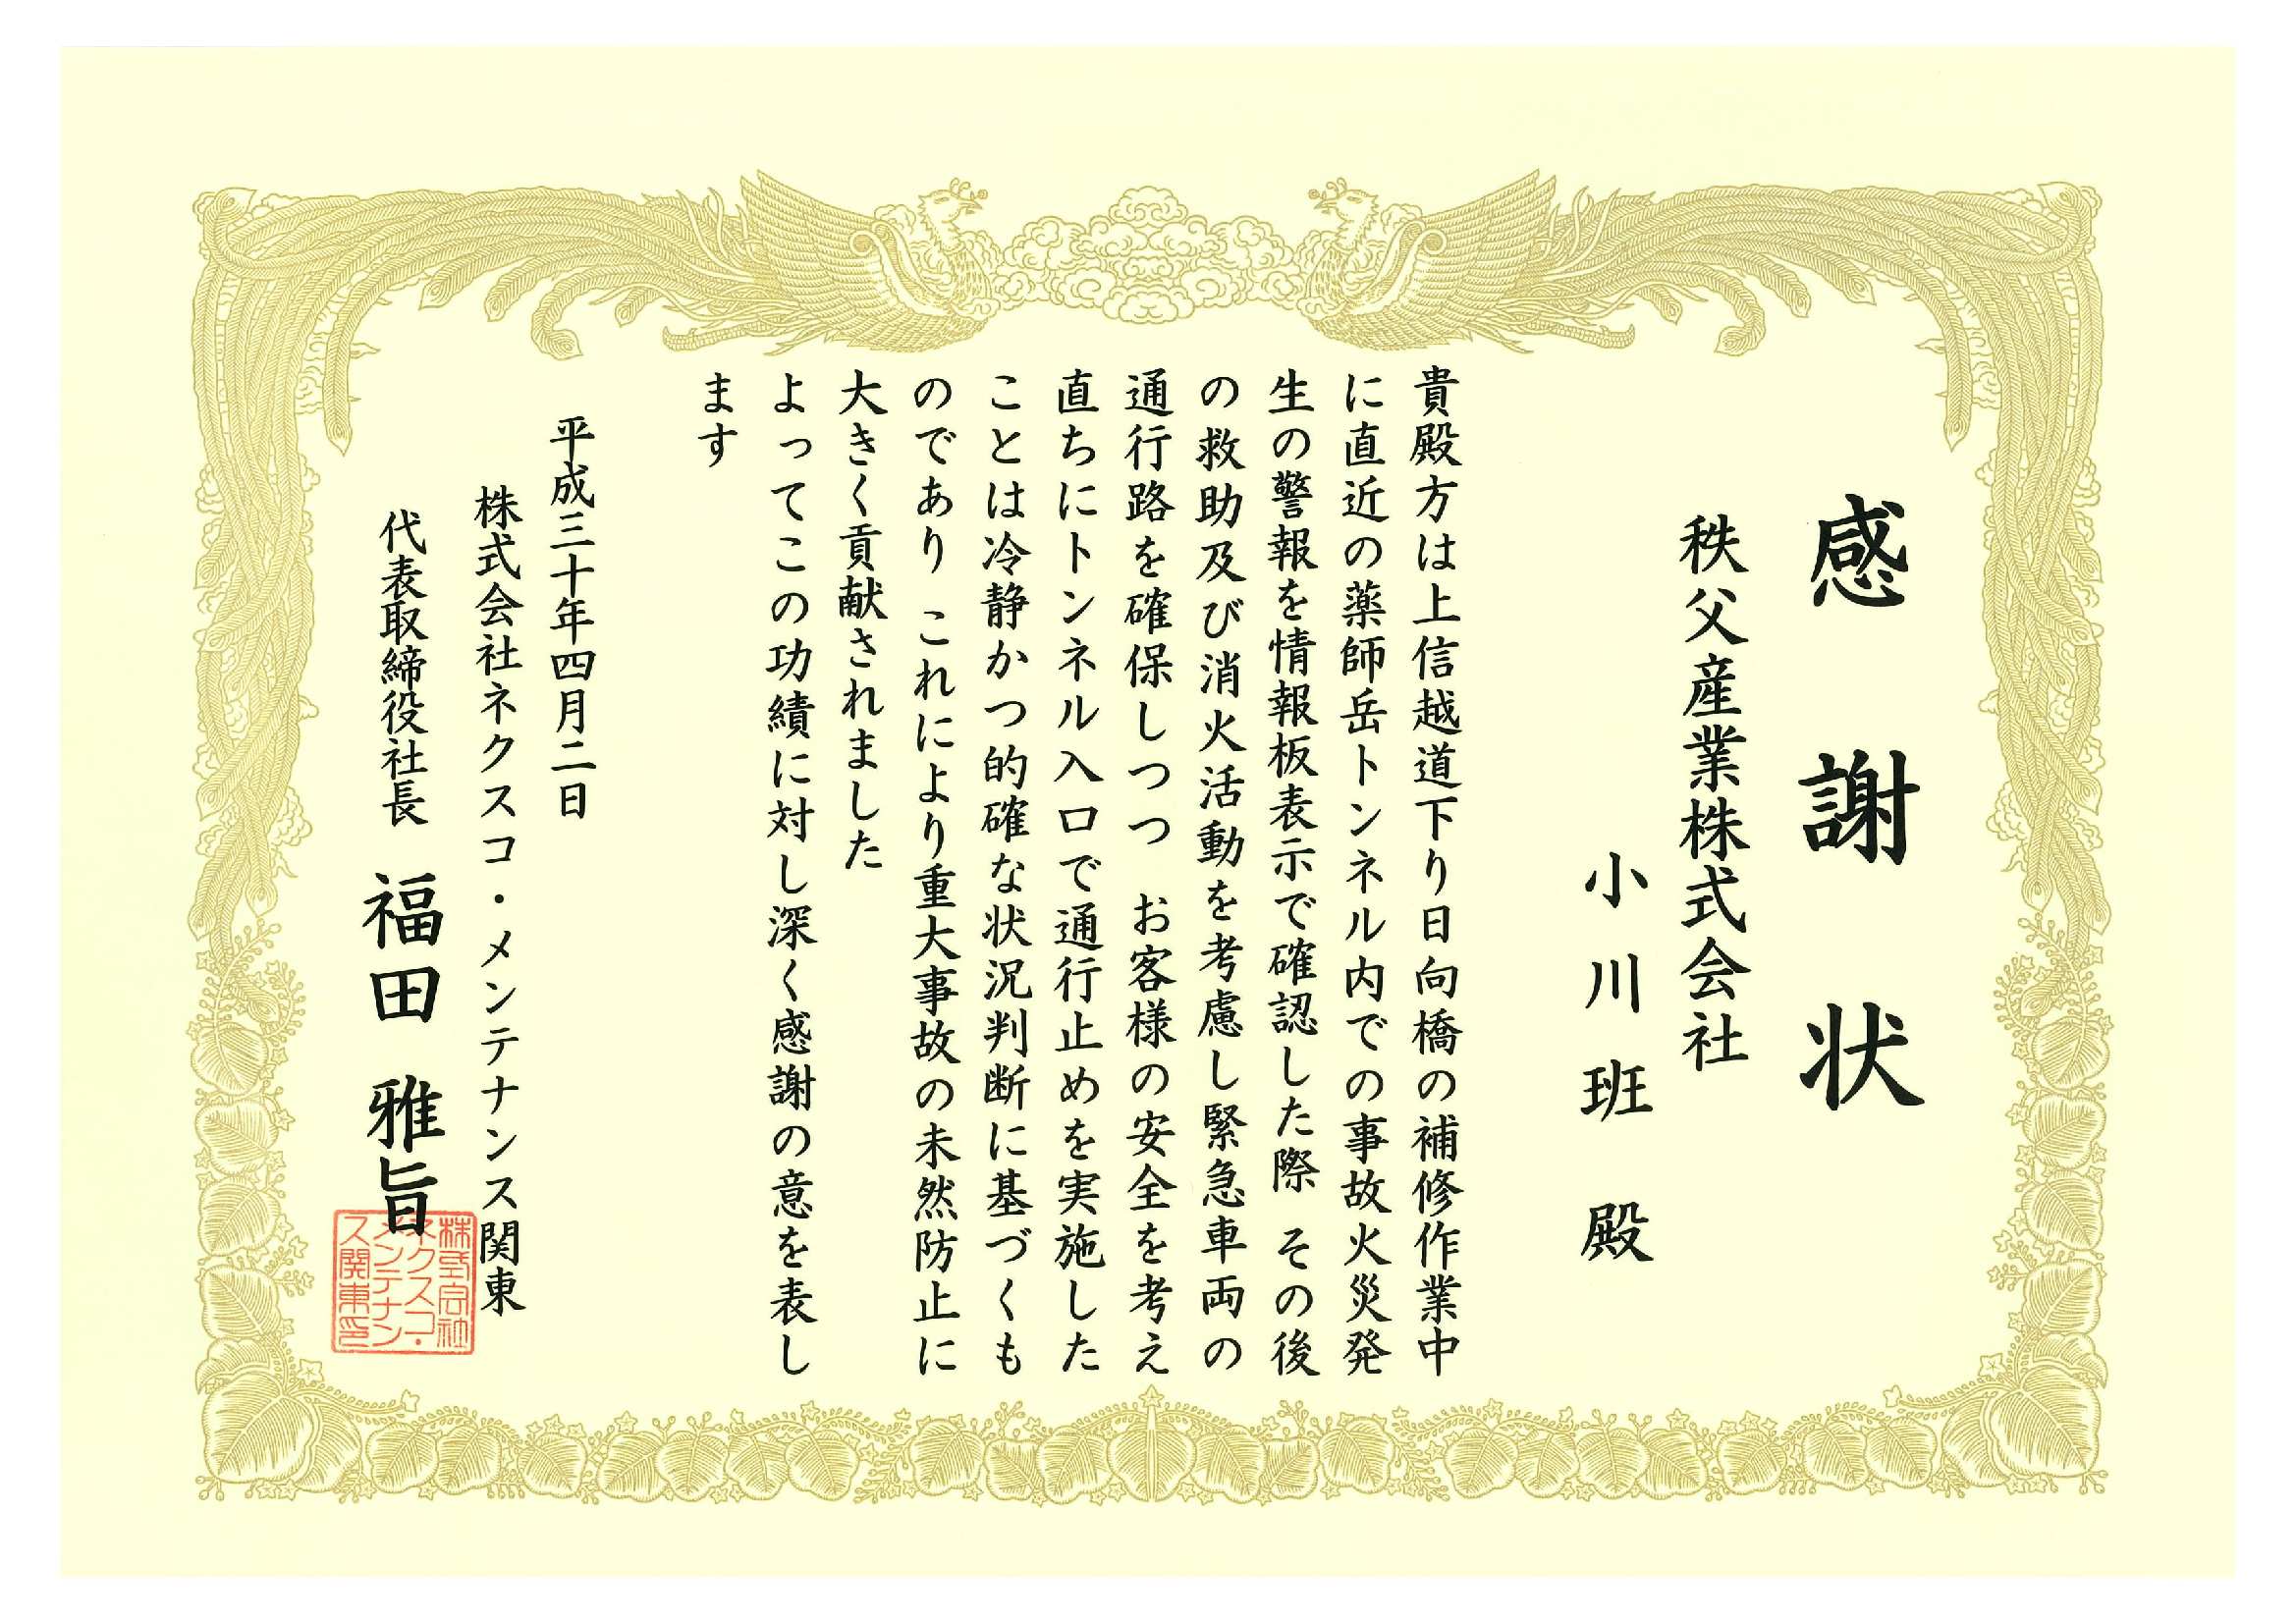 感謝状
秩父産業株式会社
小川班 殿
貴殿方は上信越道下り日向橋の補修作業中
に直近の薬師岳トンネル内での事故火災発
生の警報を情報板表示で確認した際 その後
の救助及び消火活動を考慮し緊急車両の
通行路を確保しつつ お客様の安全を考え
直ちにトンネル入口で通行止めを実施した
ことは冷静かつ的確な状況判断に基づくも
のであり これにより重大事故の未然防止に
大きく貢献されました
よってこの功績に対し深く感謝の意を表し
ます
平成三十年四月二日
株式会社ネクスコ・メンテナンス関東
代表取締役社長 福田 雅旨
株式会社
ネクスコ・
メンテナン
ス関東印